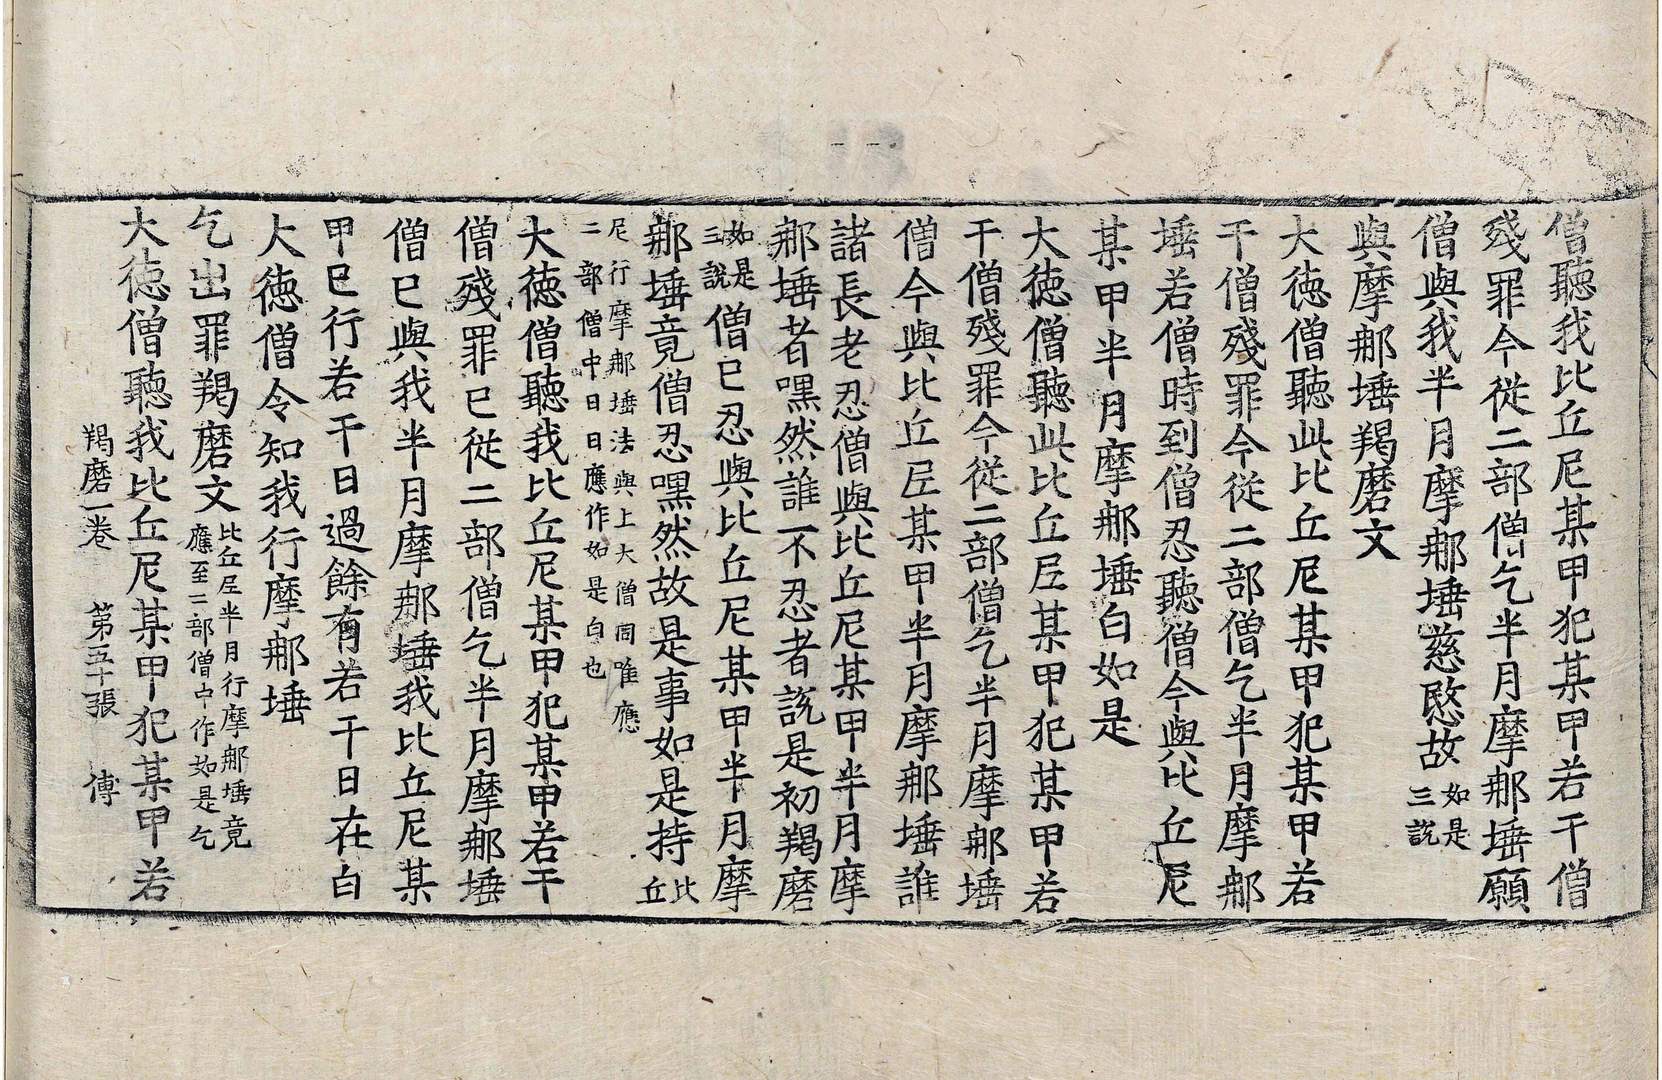 僧聽我比丘尼某甲犯某甲若干僧
殘罪今從二部僧乞半月摩那埵願
僧與我半月摩那埵慈愍故如是三說
與摩那埵羯磨文
大德僧聽此比丘尼某甲犯某甲若
干僧殘罪今從二部僧乞半月摩那
埵若僧時到僧忍聽僧今與比丘尼
某甲半月摩那埵白如是
大德僧聽此比丘尼某甲犯某甲若
干僧殘罪今從二部僧乞半月摩那埵
僧今與比丘尼某甲半月摩那埵誰
諸長老忍僧與比丘尼某甲半月摩
那埵者嘿然誰不忍者說是初羯磨
如是三說僧已忍與比丘尼某甲半月摩
那埵竟僧忍嘿然故是事如是持比丘
尼行摩那埵法與上大僧同唯應
二部僧中日日應作如是白也
大德僧聽我比丘尼某甲犯某甲若干
僧殘罪已從二部僧乞半月摩那埵
僧已與我半月摩那埵我比丘尼某
甲已行若干日過餘有若干日在白
大德僧令知我行摩那埵
乞出罪羯磨文比丘尼半月行摩那埵竟應至二部僧中作如是乞
大德僧聽我比丘尼某甲犯某甲若
羯磨一卷 第五十張 傅